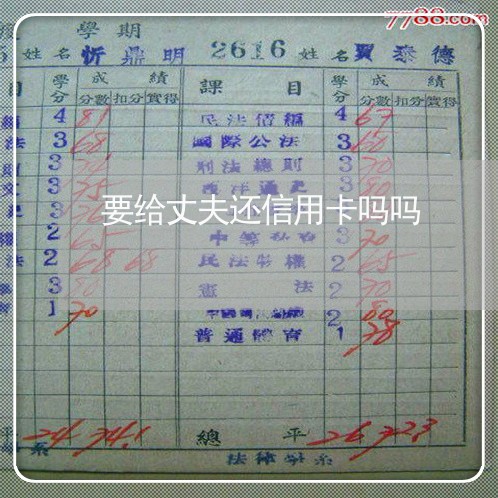 7788.com
學期
5 姓名 忻鼎明 2616 姓名 賈泰德
目 學分 成績 課目 學分 成績
分數 扣分 實得 分數 扣分 實得
4 81 民法債編 4 67
法 3 68 國際公法 3 60
3 刑法總則 3 70
3 75 西洋通史 3 80
要给丈夫还信用卡吗吗
2 65 中等私有 3 70
法 2 68 68 民法物權 2 65
3 80 憲法 2 70
1 70 2 80
普通體育 1 78
平 24 74.1 總平 26 72.3
系 法律學系